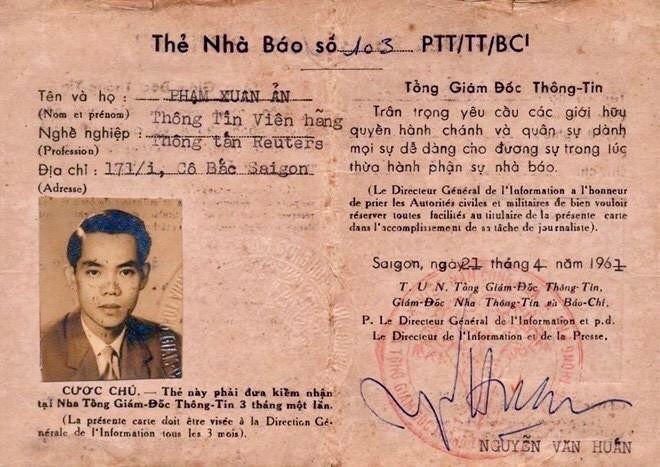 Thẻ Nhà Báo số 103 PTT/TT/BC1
Tên và họ : PHẠM XUAN ẨN
(Nom et prénom) Thông Tin Viên hãng
Nghề nghiệp : Thông tấn Reuters
(Profession)
Địa chỉ : 171/i, Cô Bắc Saigon
(Adresse)
CƯỚC CHÚ. — Thẻ này phải đưa kiểm nhận
tại Nha Tổng Giám-Đốc Thông-Tin 3 tháng một lần.
(La présente carte doit être visée à la Direction Gé-
nérale de l'Information tous les 3 mois).
Tổng Giám Đốc Thông-Tin
Trân trọng yêu cầu các giới hữu
quyền hành chánh và quân sự dành
mọi sự dễ dàng cho đương sự trong lúc
thừa hành phận sự nhà báo.
(Le Directeur Général de l'Information a l'honneur
de prier les Autorités civiles et militaires de bien vouloir
réserver toutes facilités au titulaire de la présente carte
dans l'accomplissement de sa tâche de journaliste).
Saigon, ngày 21 tháng 4 năm 1961
T. U. N. Tổng Giám-Đốc Thông-Tin,
Giám-Đốc Nha Thông-Tin và Báo-Chí.
P. Le Directeur Général de l'Information et p.d.
Le Directeur de l'Information et de la Presse.
NGUYỄN VĂN HUẤN